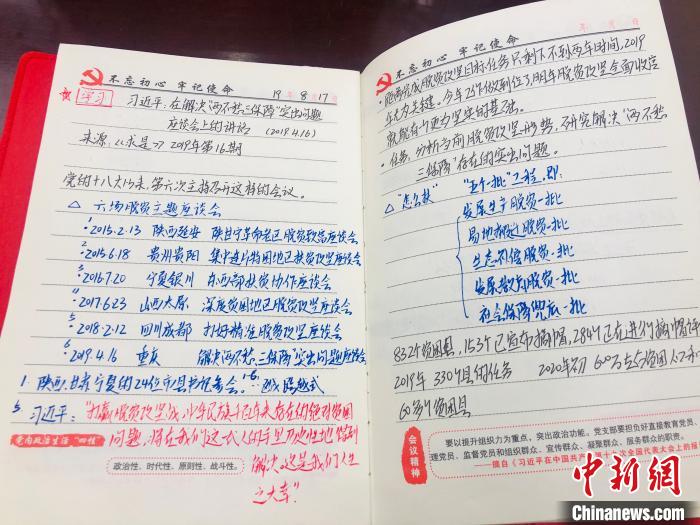 不忘初心 牢记使命
19年8月17日
学习
习近平：在解决"两不愁三保障"突出问题
座谈会上的讲话 (2019.4.16)
来源：《求是》2019年第16期
党的十八大以来，第六次主持召开这样的会议。
△ 六场脱贫主题座谈会
1 2015.2.13 陕西延安 陕甘宁革命老区脱贫致富座谈会
2 2015.6.18 贵州贵阳 集中连片特困地区扶贫攻坚座谈会
3 2016.7.20 宁夏银川 东西部扶贫协作座谈会
4 2017.6.23 山西太原 深度贫困地区脱贫攻坚座谈会
5 2018.2.12 四川成都 打好精准脱贫攻坚座谈会
6 2019.4.16 重庆 解决"两不愁三保障"突出问题座谈会
1. 陕西、甘肃、宁夏的24位市县书记参会。
习近平："打赢脱贫攻坚战，中华民族千百年来存在的绝对贫困
问题，将在我们这一代人的手里历史性地得到
解决，这是我们人生
之大幸"
党内政治生活"四性"
政治性、时代性、原则性、战斗性。
年 月 日
不忘初心 牢记使命
完成脱贫攻坚目标任务只剩下不到两年时间，2019
年尤为关键。
就能有更为坚实的基础。
任务：分析当前脱贫攻坚形势，研究解决"两不愁
三保障"存在的突出问题。
△ "怎么扶" "五个一批"工程，即：
发展生产脱贫一批
易地搬迁脱贫一批
生态补偿脱贫一批
发展教育脱贫一批
社会保障兜底一批
832个贫困县，153个已宣布摘帽，284个正在进行摘帽评
2019年 330个县的任务 2020年初 600万左右贫困人口和
60多个贫困县
会议精神
要以提升组织力为重点，突出政治功能。党支部要担负好直接教育党员、
理党员、监督党员和组织群众、宣传群众、凝聚群众、服务群众的职责。
——摘自《习近平在中国共产党第十九次全国代表大会上的报
中新网
Chinanews.com